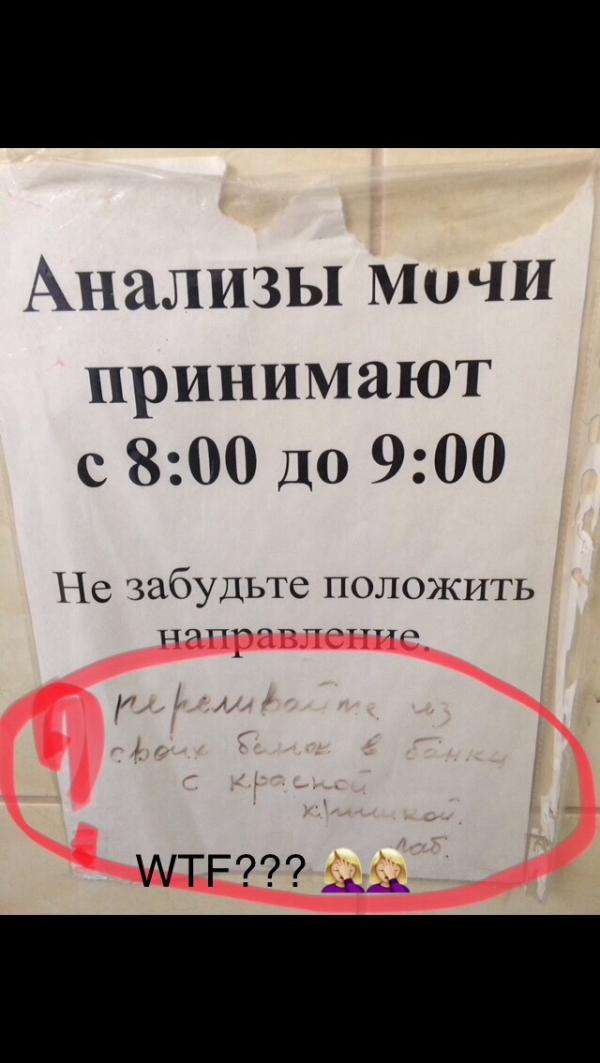 Анализы мочи
принимают
с 8:00 до 9:00
Не забудьте положить
направление.
переливайте из
своих банок в банки
с красной
крышкой.
Лаб.
WTF??? 🤦🏼‍♀️🤦🏼‍♀️